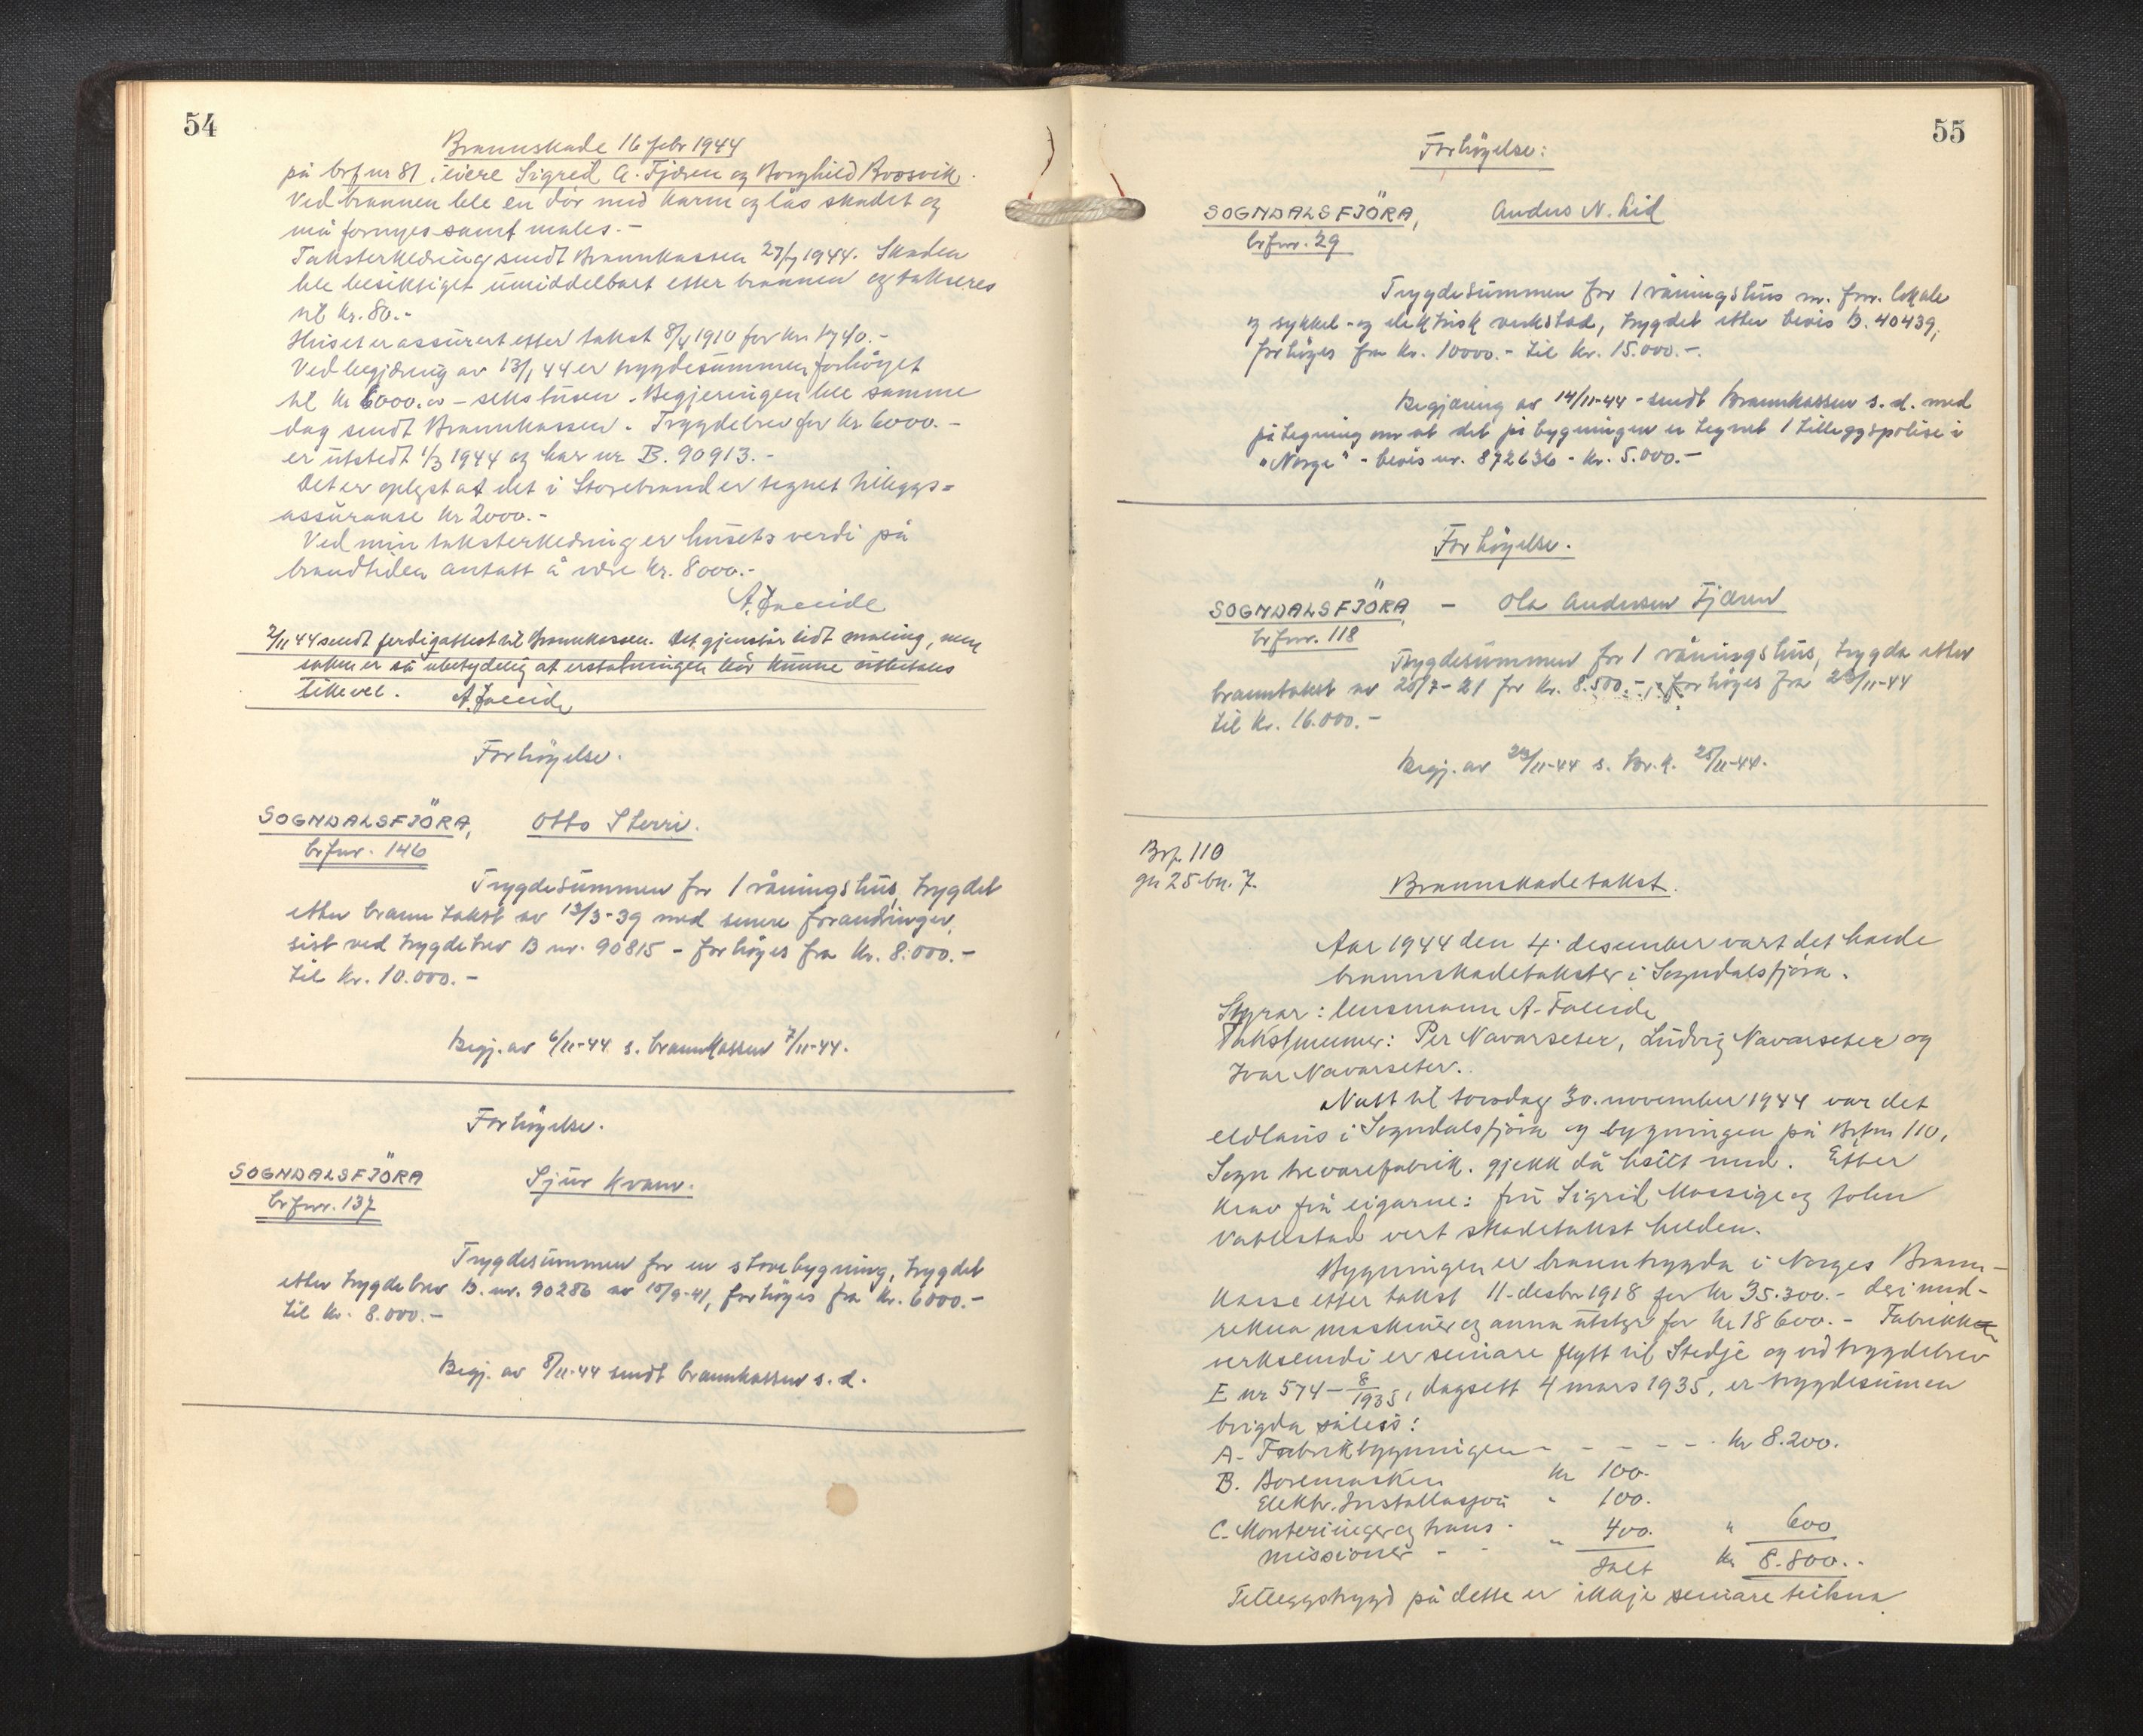 54
Brannskade 16 febr 1944
på brf nr 81, eiere Sigrid A. Fjæren og Borghild Roosvik.
Ved brannen ble en dör med karm og lås skadet og
må fornyes samt males.-
Taksterklæring sendt Brannkassen 1944. Skaden
ble besiktiget umiddelbart etter brannen og takseres
til kr. 80.-
Huset er assurert etter takst 8/4 1910 for kr.
Ved begjæring av 13/1 44 er trygdesummen forhöyet
til kr 6000.00 - seks tusen. Begjeringen ble samme
dag sendt Brannkassen. Trygdebrev for kr 6000.-
er utstedt 1/3 1944 og har nr B. 90913.-
Det er oplyst at det i Storebrand er tegnet tilleggs=
assuranse kr 2000.-
Ved min taksterklæring er husets verdi på
brandtiden antatt å være kr. 8000.-
A. Faleide
2/11 44 sendt ferdigattest til Brannkassen. Det gjenstår lidt maling, men
saken er så ubetydelig at erstatningen bör kunne utbetales
likevel. A. Faleide
Forhöyelse.
SOGNDALSFJÖRA, Otto Sterri.
brfnr. 146
Trygdesummen for 1 våningshus, trygdet
etter branntakst av 13/3-39 med senere forandringer,
sist ved trygdebrev B nr. 90815 - forhöyes fra kr. 8.000.-
til kr. 10.000.-
Begj. av 6/11-44 s. brannkassen 7/11-44.
Forhöyelse.
SOGNDALSFJÖRA Sjur Kvam.
brfnr. 137
Trygdesummen for en stovebygning, trygdet
etter trygdebrev B. nr. 90286 av 10/9-41, forhöyes fra kr. 6000.-
til kr. 8.000.-
Begj. av 8/11-44 sendt brannkassen s. d.
55
Forhöyelse:
SOGNDALSFJÖRA, Anders N. Lid
brfnr. 29
Trygdesummen for 1 våningshus m. forr. lokale
og sykkel- og elektrisk verkstad, trygdet etter bevis B. 40439,
forhöyes fra kr. 10000.- til kr. 15.000.-.
Begjæring av 14/11-44 - sendt Brannkassen s. d. med
påtegning om at det på bygningen er tegnet 1 tilleggspolise i
"Norge" - bevis nr. 872636 - kr. 5.000.-
Forhöyelse.
SOGNDALSFJÖRA - Ola Andersen Fjæren
brfnr. 118
Trygdesummen for 1 våningshus, trygda etter
branntakst av 20/7-21 for kr. 8.500.-, forhöyes fra 23/11-44
til kr. 16.000.-
Begj. av 23/11-44 s. Br.k. 25/11-44.
Brf. 110
gn 25 bn. 7.
Brannskadetakst.
Aar 1944 den 4. desember vart det halde
brannskadetakster i Sogndalsfjöra.
Styrar: lensmann A. Faleide
Takstmenner: Per Navarseter, Ludvig Navarseter og
Ivar Navarseter.
Natt til torsdag 30. november 1944 var det
eldlaus i Sogndalsfjöra og bygningen på Brfnr 110,
Sogn trevarefabrik. gjekk då heilt med. Etter
krav frå eigarne: fru Sigrid Massige og John
Vatlestad vert skadetakst helden.
Bygningen er branntrygda i Norges Brann-
kasse etter takst 11-desbr 1918 for kr 35.300.- deri med-
rekna maskiner og anna utstyr for kr 18600.- Fabrikk
verksemdi er seinare flytt til Stedje og ved trygdebrev
E nr 574 - 8/1935, dagsett 4 mars 1935, er trygdesumen
brigda såleis:
A- Fabrikbygningen - - - - - kr 8.200.
B. Boremaskin kr 100.
Elektr. Installasjon " 100.
C. Monteringer og trans-
missioner - - " 400. " 600
Ialt kr 8.800.-
Tilleggstrygd på dette er ikkje seinare teikna